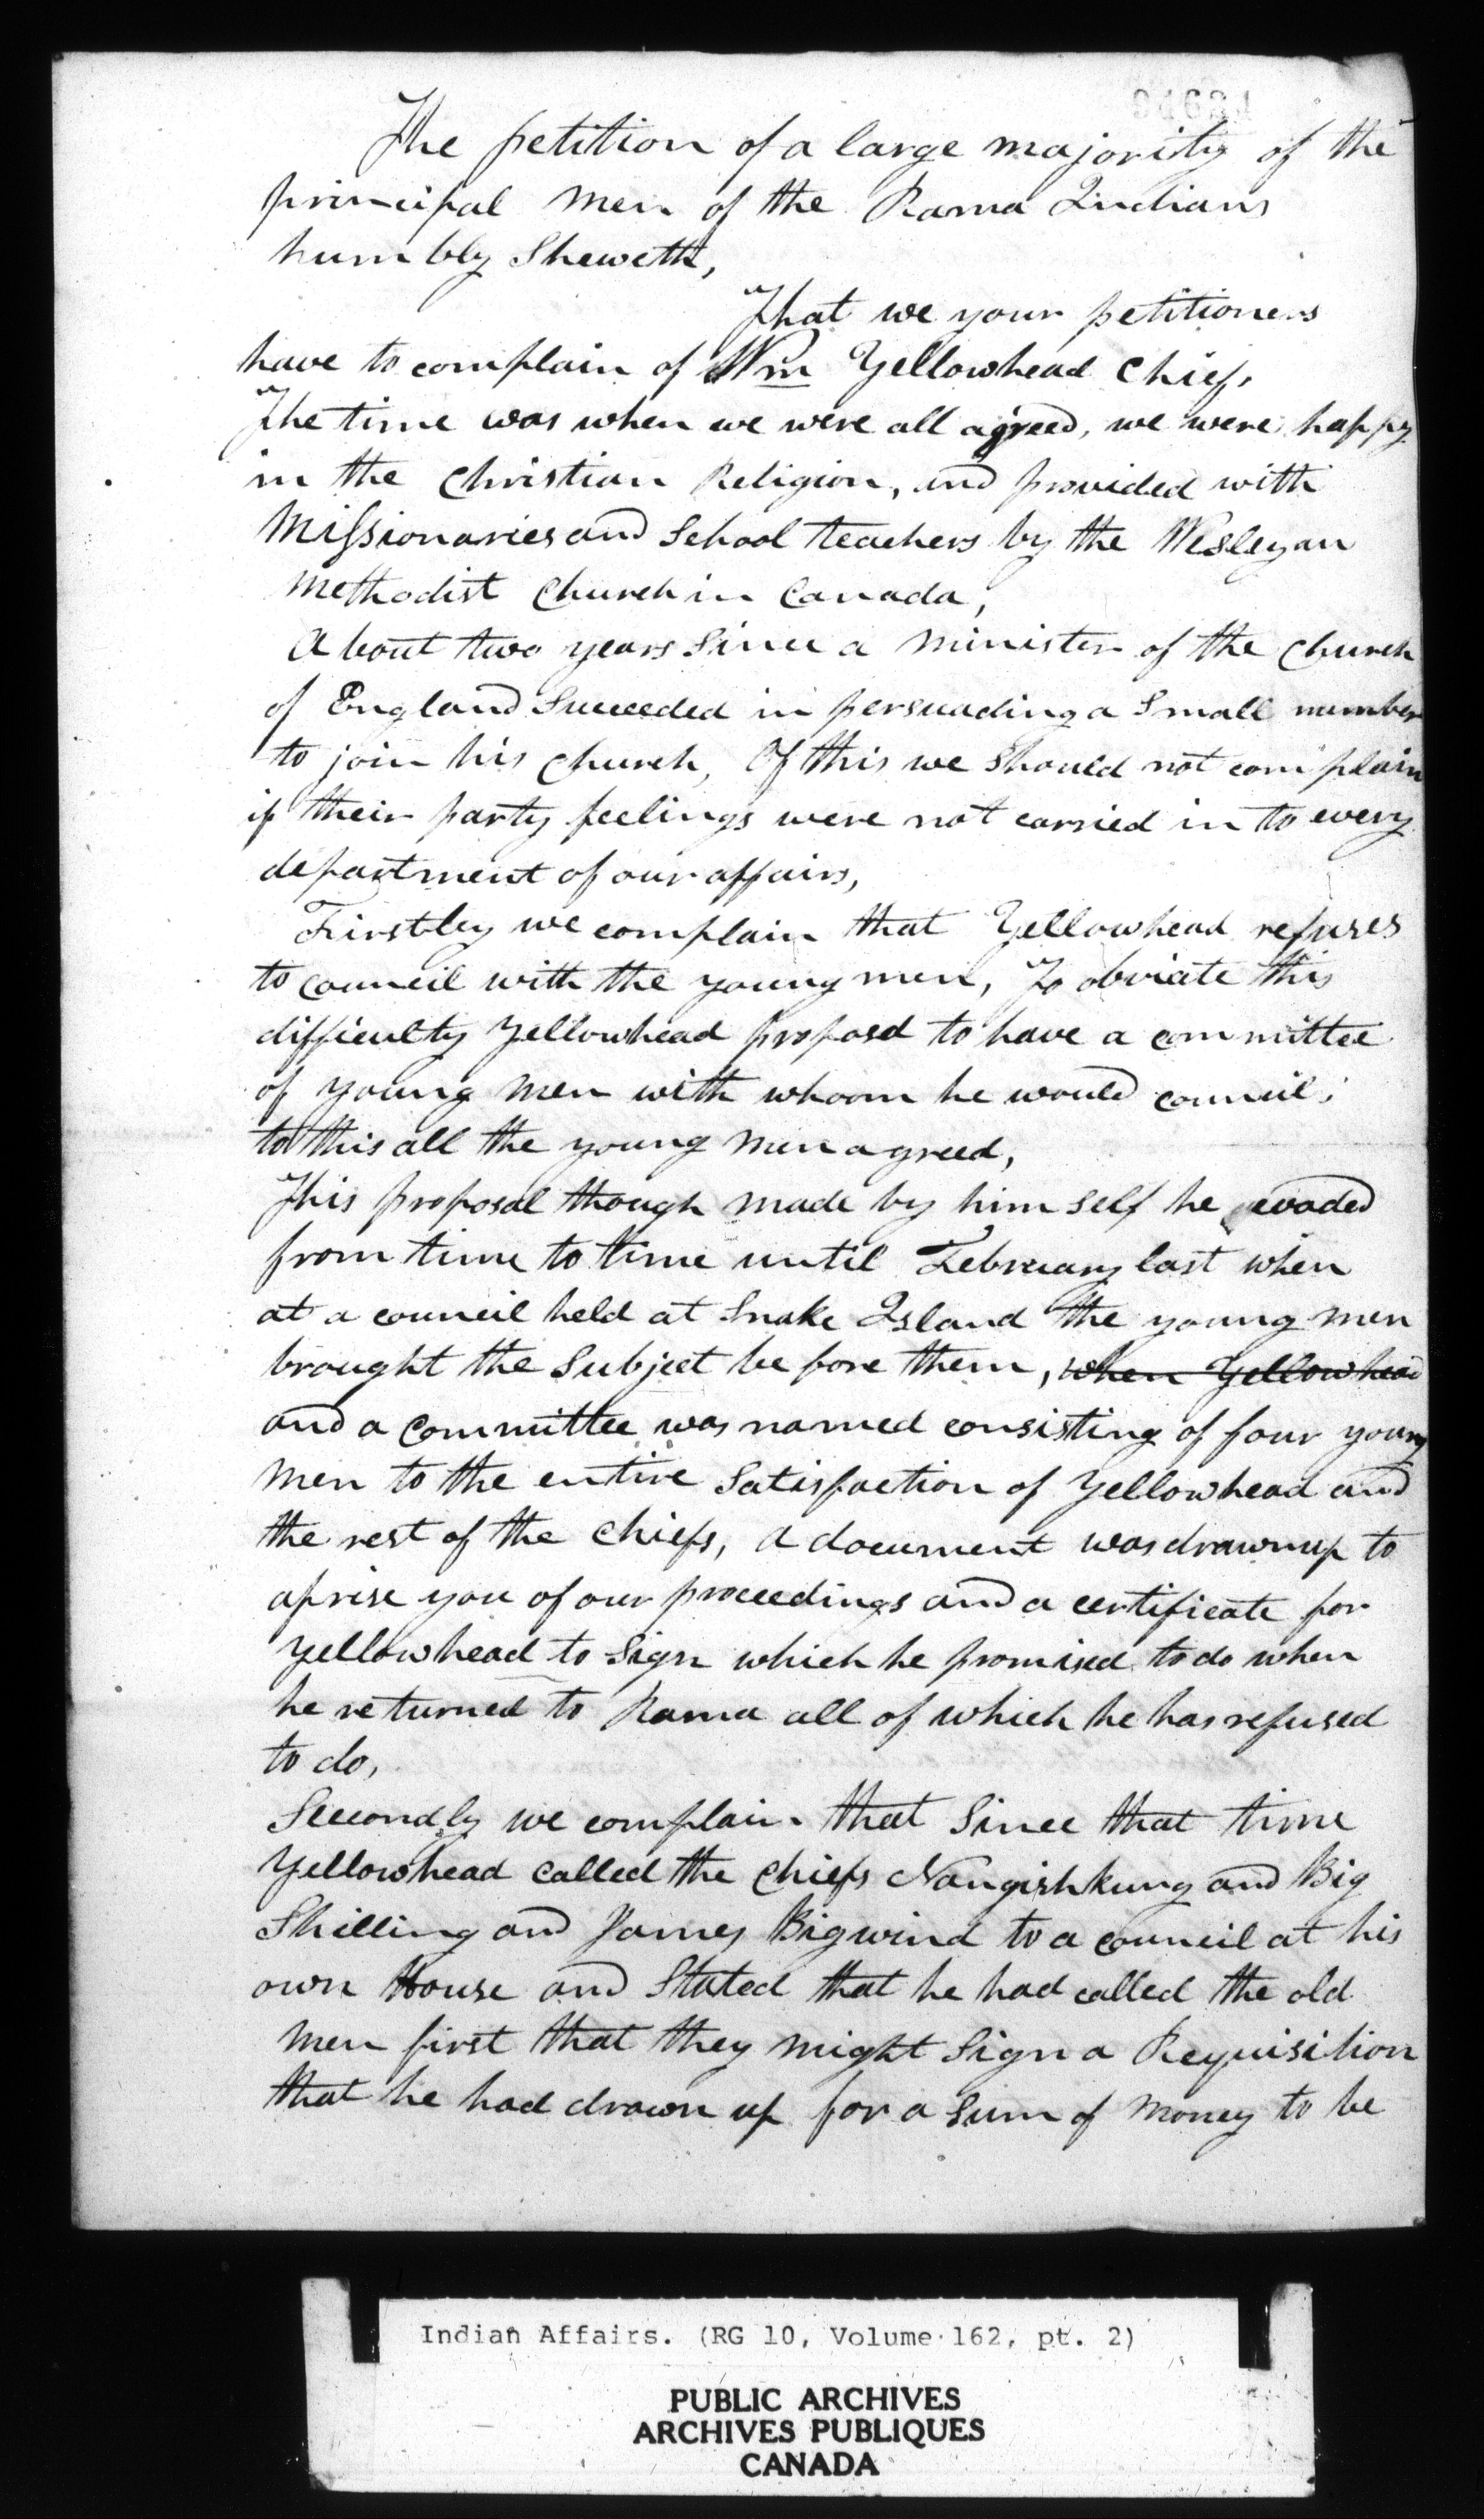 The petition of a large majority of the
principal men of the Rama Indians
humbly Sheweth,
That we your petitioners
have to complain of Wm Yellowhead Chief,
The time was when we were all agreed, we were happy
in the Christian Religion, and provided with
Missionaries and School teachers by the Wesleyan
Methodist Church in Canada,
About two years Since a minister of the Church
of England Succeeded in persuading a Small number
to join his Church, Of this we Should not complain
if their party feelings were not carried in to every
department of our affairs,
Firstbly we complain that Yellowhead refuses
to council with the young men, To obviate this
difficulty Yellowhead proposd to have a committee
of young men with whoom he would council;
to this all the young men agreed,
This proposal though made by him self he evaded
from time to time until February last when
at a council held at Snake Island the young men
brought the Subject before them, when Yellowhead
and a Committee was named consisting of four young
men to the entire Satisfaction of Yellowhead and
the rest of the Chiefs, A document was drawn up to
aprise you of our proceedings and a certificate for
Yellowhead to Sign which he promised to do when
he returned to Rama all of which he has refused
to do,
Secondly we complain that Since that time
Yellowhead Called the Chiefs Nangishkung and Big
Shilling and James Bigwind to a council at his
own House and Stated that he had called the old
men first that they might Sign a Requisition
that he had drawn up for a Sum of money to be
Indian Affairs. (RG 10, Volume 162, pt. 2)
PUBLIC ARCHIVES
ARCHIVES PUBLIQUES
CANADA